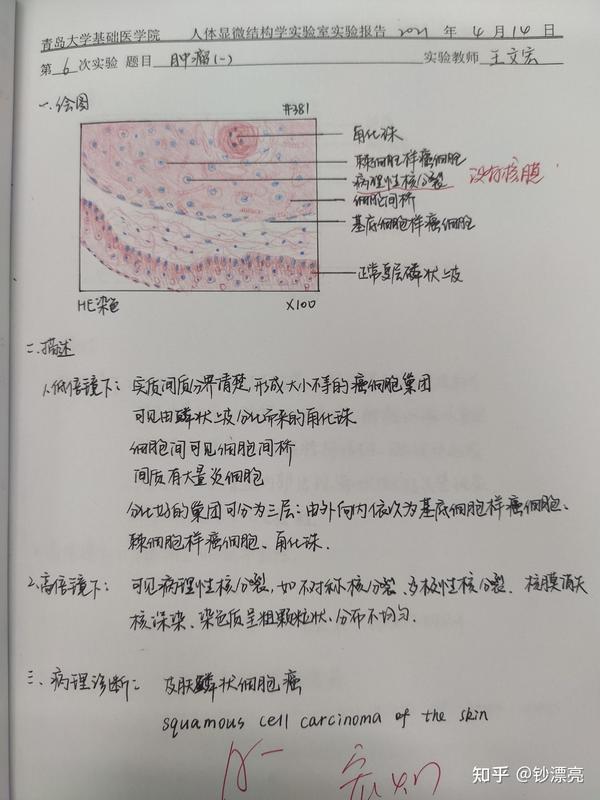 青岛大学基础医学院 人体显微结构学实验室实验报告 2021 年 4 月 14 日
第 6 次实验 题目 肿瘤(一) 实验教师 王文宏
一.绘图
#381
角化珠
棘细胞样癌细胞
病理性核分裂 没有核膜
细胞间桥
基底细胞样癌细胞
正常复层鳞状上皮
HE染色 X100
二.描述
1.低倍镜下: 实质间质分界清楚,形成大小不等的癌细胞巢团
可见由鳞状上皮分化而来的角化珠
细胞间可见细胞间桥
间质有大量炎细胞
分化好的巢团可分为三层:由外向内依次为基底细胞样癌细胞、
棘细胞样癌细胞、角化珠.
2.高倍镜下: 可见病理性核分裂,如不对称核分裂、多极性核分裂. 核膜消失
核深染、染色质呈粗颗粒状、分布不均匀.
三、病理诊断: 皮肤鳞状细胞癌
squamous cell carcinoma of the skin
A-
知乎 @钞漂亮